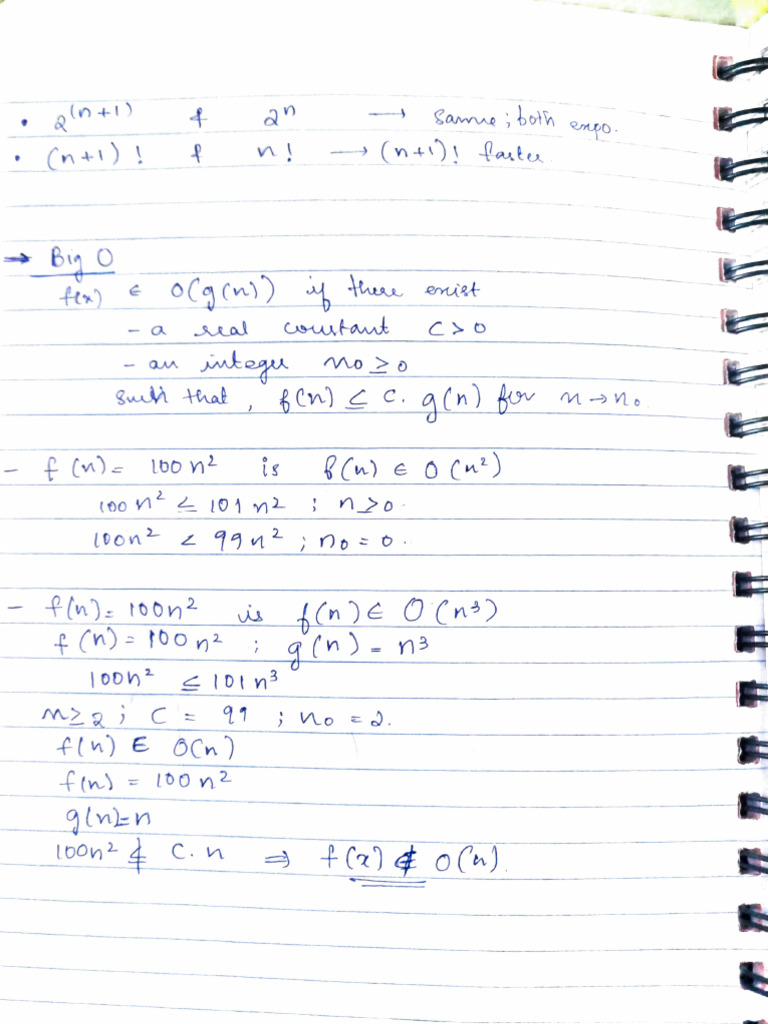 • 2^(n+1) & 2^n → same; both expo.
• (n+1)! & n! → (n+1)! faster
→ Big O
f(x) ∈ O(g(n)) if there exist
- a real constant C>0
- an integer n0 ≥ 0
such that, f(n) ≤ c. g(n) for n→n0
- f(n) = 100n² is f(n) ∈ O(n²)
100n² ≤ 101n² ; n≥0.
100n² < 99n² ; n0 = 0.
- f(n) = 100n² is f(n) ∈ O(n³)
f(n) = 100n² ; g(n) = n³
100n² ≤ 101n³
n≥2 ; C = 99 ; n0 = 2.
f(n) ∈ O(n)
f(n) = 100n²
g(n)=n
100n² ≰ C.n ⇒ f(x) ∉ O(n).